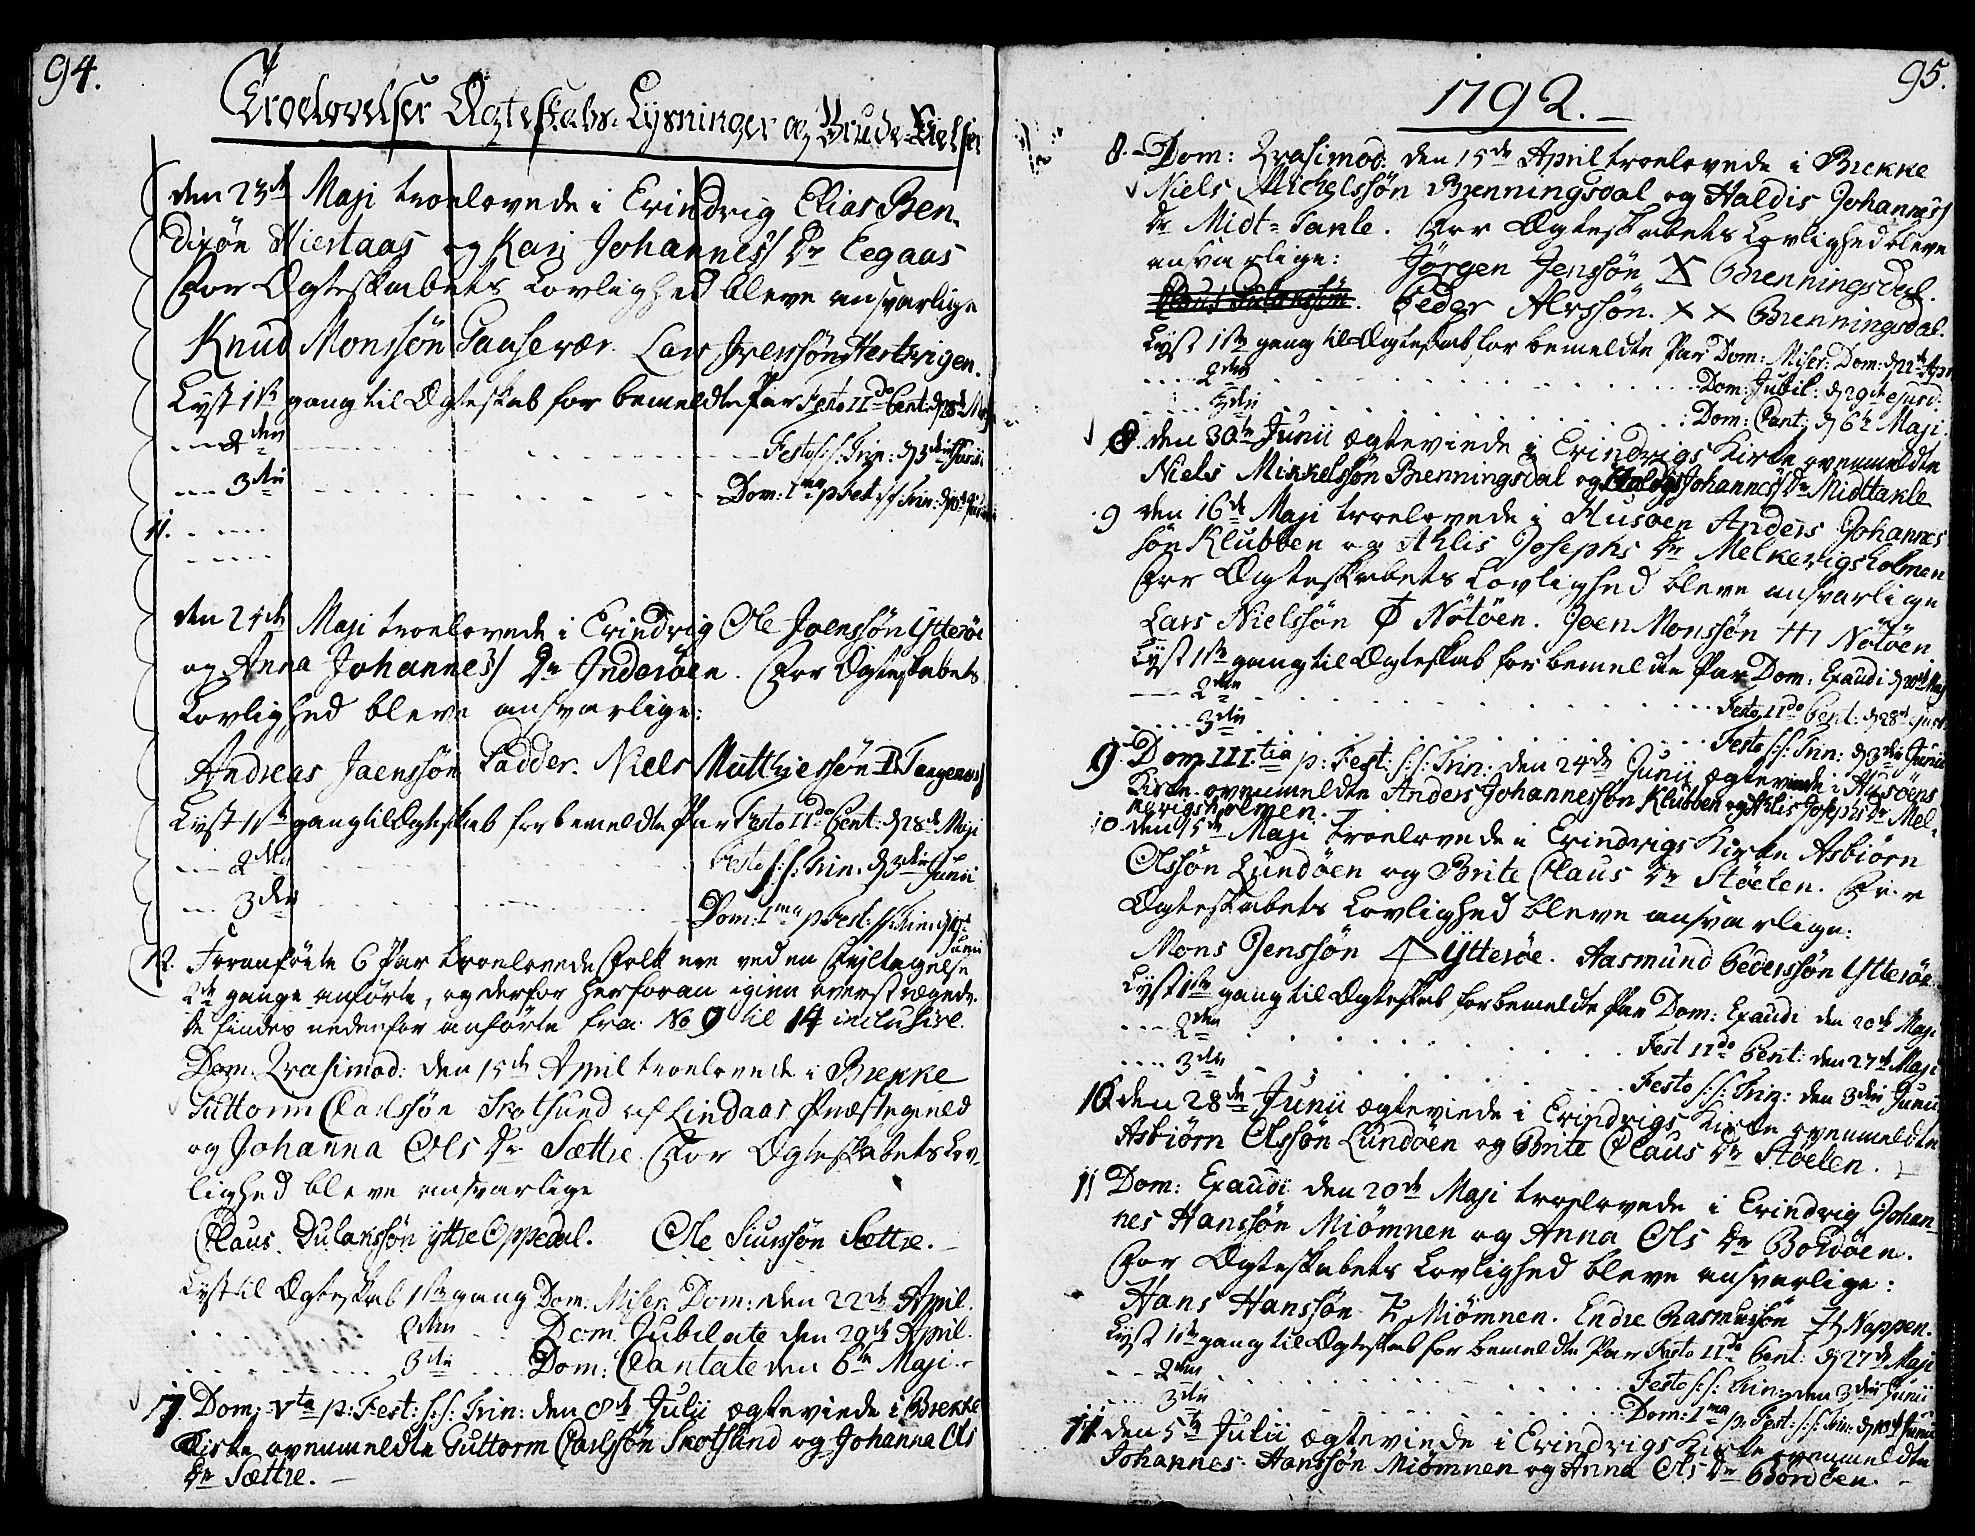 94.
Troelovelser Ægteskabs-Lysninger og Brude-Vielser
den 23de Maji troelovede i Evindvig Elias Ben-
dixøn Hiertaas og Kari Johannes Dr Eegaas
For Ægteskabets Lovlighed bleve ansvarlige
Knud Monssøn Gaasevær. Lars Iverssøn Hertvigen.
Lyst 1ste gang til Ægteskab for bemeldte Par Festo IIdo Pent: d 28de Maji
---- 2den Festo S: S: Trin: d 3die Junii
---- 3die Dom: 1ma p Fest: SS Trin: d 10de Junii
11. ----
den 24de Maji troelovede i Evindvig Ole Joenssøn Ytterøe
og Anna Johannes Dr Inderøen. For Ægteskabets
Lovlighed bleve ansvarlige:
Andreas Jaenssøn Fadder. Niels Matthiessøn
Lyst 1ste gang til Ægteskab for bemeldte Par Festo IIdo Pent: d 28de Maji
---- 2den Festo S: S: Trin. d 3die Junii
---- 3die Dom: 1ma p Fest: SS Trin: d 10de Junii
12. Foranførte 6 Par troelovede Folk ere ved en Fejltagelse
2de gange anførte, og derfor herforan igien overstregede.
de findes nedenfor anførte fra No 9 til 14 inclusive.
Dom. Qvasimod: den 15de April troelovede i Brekke
Guttorm Carlssøn Skotsund af Lindaas Præstegield
og Johanna Ols Dr Sættre. For Ægteskabets Lov-
lighed bleve ansvarlige
Claus Dulanssøn yttre Oppedal. Ole Siurssøn Sættre.
Lyst til Ægteskab 1ste gang Dom: Miser. Dom: den 22de April.
2den Dom. Jubilate den 29de April.
3die Dom: Cantate den 6te Maji.
7. Dom: Vta p: Fest: S: S: Trin: den 8de Julii ægteviede i Brekke
Kirke ovenmeldte Guttorm Carlssøn Skotsund og Johanna Ols
Dr Sættre.
1792.
95.
8. Dom: Qvasimod: den 15de April troelovede i Brekke
Niels Michelssøn Brenningsdal og Haldis Johannes
Dr Midt-Takle. For Ægteskabets Lovlighed bleve
ansvarlige: Jørgen Jenssøn X Brenningsdal.
Peder Alvssøn. X X Brenningsdal.
Lyst 1ste gang til Ægteskab for bemeldte Par Dom: Miser: Dom: d 22de Apr
---- 2den Dom: Jubil: d 29de ejusd.
---- 3die Dom: Cant: d 6te Maji.
8. den 30te Junii ægteviede i Evindvigs Kirke ovenmeldte
Niels Mikkelssøn Brenningsdal og Haldis Johannes Dr Midttakle
9 den 16de Maji troelovede i Husøen Anders Johannes
søn Klubben og Ahlis Josephs Dr Melkevigsholmen
For Ægteskabets Lovlighed bleve ansvarlige
Lars Nielssøn Nøtøen. Joen Monssøn Nøtøen.
Lyst 1ste gang til Ægteskab for bemeldte Par Dom: Exaudi d 20de Maj
---- 2den Festo IIdo Pent: d 28de ejusd.
---- 3die Festo S: S: Trin: d 3die Junii
9. Dom. IIItia p: Fest: S: S: Trin: den 24de Junii ægteviede i Husøens
Kirke ovenmeldte Anders Johannessøn Klubben og Ahlis Josephs Dr Mel-
kevigsholmen.
10 den 15de Maji troelovede i Evindvigs Kirke Asbiørn
Olssøn Lundøen og Brite Claus Dr Støelen. For
Ægteskabets Lovlighed bleve ansvarlige:
Mons Jenssøn Ytterøe. Aasmund Pederssøn Ytterøe
Lyst 1ste gang til Ægteskab for bemeldte Par Dom: Exaudi den 20de Maji
---- 2den Fest IIdo Pent: den 27de Maji
---- 3die Festo S: S: Trin: den 3die Junii
10. den 28de Junii ægteviede i Evindvigs Kirke ovenmeldte
Asbiørn Olssøn Lundøen og Brite Claus Dr Støelen.
11 Dom: Exaudi den 20de Maji troelovede i Evindvig Johan-
nes Hanssøn Miømnen og Anna Ols Dr Bordøen.
For Ægteskabets Lovlighed bleve ansvarlige:
Hans Hanssøn Miømnen. Endre Rasmussøn Nappen.
Lyst 1ste gang til Ægteskab for bemeldte Par Festo IIdo Pent: d 27de Maji
-- 2den Festo S: S: Trin: den 3die Junii
---- 3die Dom: 1ma p: Fest: S: S: Trin: d 10de Junii
11 den 5te Julii ægteviede i Evindvigs Kirke ovenmeldte
Johannes Hanssøn Miømnen og Anna Ols Dr Bordøen.